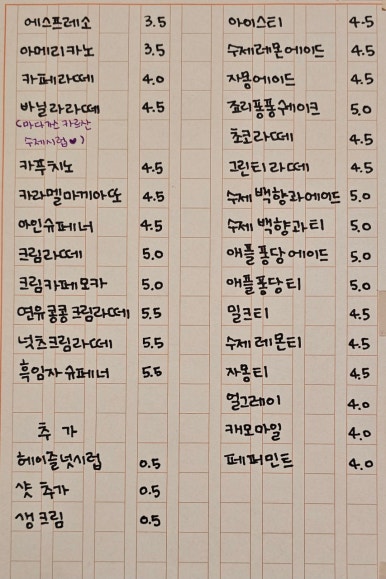 에스프레소 3.5
아메리카노 3.5
카페라떼 4.0
바닐라라떼 4.5
(마다가스카르산
수제시럽♥)
카푸치노 4.5
카라멜마끼아또 4.5
아인슈페너 4.5
크림라떼 5.0
크림카페모카 5.0
연유콩콩크림라떼 5.5
넛츠크림라떼 5.5
흑임자슈페너 5.5
추가
헤이즐넛시럽 0.5
샷 추가 0.5
생크림 0.5
아이스티 4.5
수제레몬에이드 4.5
자몽에이드 4.5
죠리퐁퐁쉐이크 5.0
초코라떼 4.5
그린티라떼 4.5
수제백향과에이드 5.0
수제백향과티 5.0
애플퐁당에이드 5.0
애플퐁당티 5.0
밀크티 4.5
수제레몬티 4.5
자몽티 4.5
얼그레이 4.0
캐모마일 4.0
페퍼민트 4.0